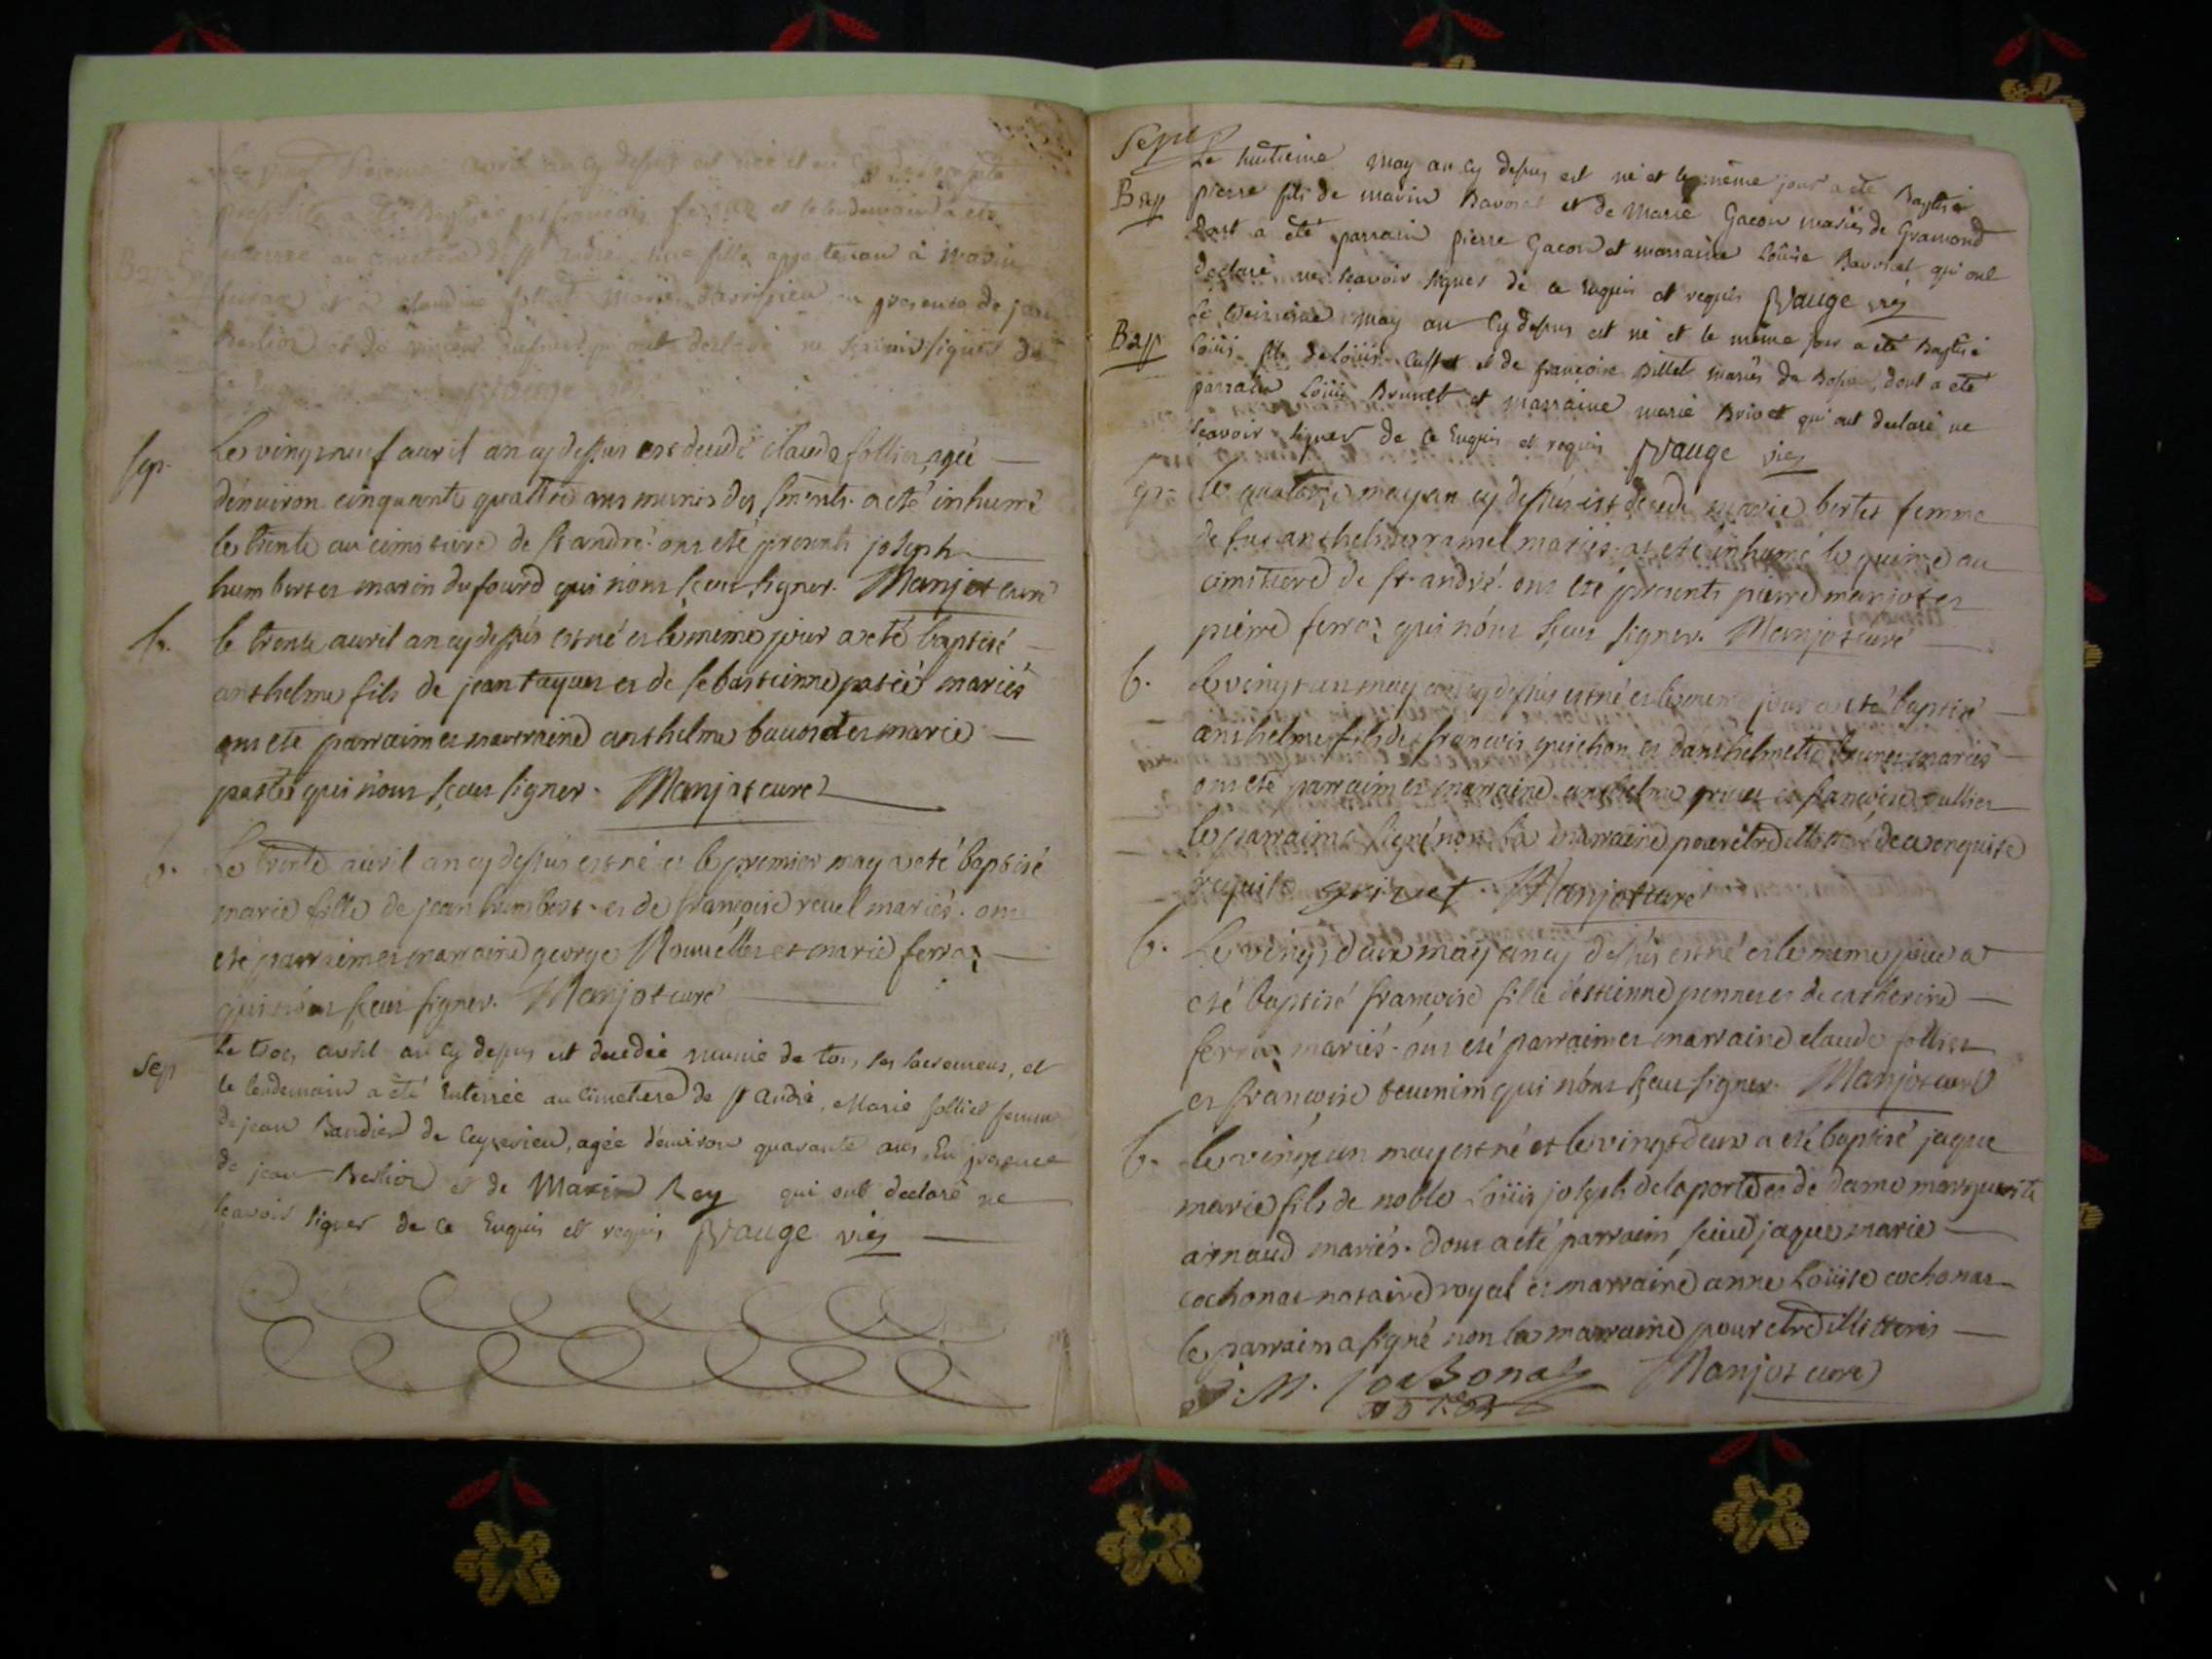 avril an cy dessus est née et
a été Baptisée par françois ferraz et le lendemain a été
enterrée au cimetiere de st André une fille appartenant à marin
ferraz et à claudine mariés en presence de jean
Bestion et de vincent qui ont declaré ne scavoir signer de
ce Enquis et requis
sep. Le vingt neuf avril an cy dessus est decedé claude sollier, ageé
d'environ cinquante quattre ans munis des sments. a eté inhumé
le trente au cimetiere de st andré. ont eté presents joseph
humbert et marin dufourd qui n'ont sceu signer. Manjot curé
b. le trente avril an cy dessus est né et le meme jour a eté baptisé
anthelme fils de jean tuyau et de sebastienne patié mariés
ont eté parrain et marraine anthelme bavoset et marie
patié qui n'ont sceu signer. Manjot curé
b. Le trente avril an cy dessus est né et le premier may a eté baptisé
marie fille de jean humbert et de françoise revel mariés. ont
eté parrain et marraine george Nouvelles et marie ferraz
qui n'ont sceu signer. Manjot curé
Sep Le trois avril an cy dessus est decedée munie de tous les sacremens, et
le lendemain a été Enterrée au cimetiere de st André, Marie sollier femme
de jean Baudier de Ceyserieu, agée d'environ quarante ans, En presence
de jean Bestion et de Marin Rey qui ont declaré ne
scavoir signer de ce Enquis et requis Vauge vic
Sepul
Bap Le huitieme may an cy dessus est né et le même jour a été Baptisé
pierre fils de marin Bavoset et de Marie Gacon mariés de Gramond
dont a été parrain pierre Gacon et marraine Louise Bavoset qui ont
declaré ne scavoir signer de ce enquis et requis Vauge vic
Bap Le treisieme may an cy dessus est né et le même jour a été Baptisé
Louis fils de Louis et de françoise Billet mariés de dont a été
parrain Louis Brunet et marraine marie Brivet qui ont declaré ne
scavoir signer de ce Enquis et requis Vauge vic
sep. le quatorze may an cy dessus est decedé marie bertet femme
de fut anthelme ramel mariés. a eté inhumé le quinze au
cimitiere de st. andré. ont eté presents pierre marjot et
pierre ferraz qui n'ont sceu signer. Manjot curé
b. le vingt un may an cy dessus est né et le meme jour a eté baptisé
anthelme fils de francois guichon et d'anthelmette mariés
ont eté parrain et marraine anthelme grivet et françoise sullier
le parrain a signé non la marraine pour etre illiteré de ce enquise
requise grivet Manjot curé
b. Le vingt deux may an cy dessus est né et le meme jour a
eté baptisé françoise fille d'estienne pennet et de catherine
ferraz mariés. ont eté parrain et marraine claude sollier
et françoise qui n'ont sceu signer. Manjot curé
b. le vingt un may est né et le vingt deux a eté baptisé jaque
marie fils de noble Louis joseph delaporte et de dame marguerite
arnaud mariés. dont a eté parrain sieur jaque marie
cochonat notaire royal et marraine anne Louise cochonat
le parrain a signé non la marraine pour etre illitteris
J. M. Cochonat Manjot curé